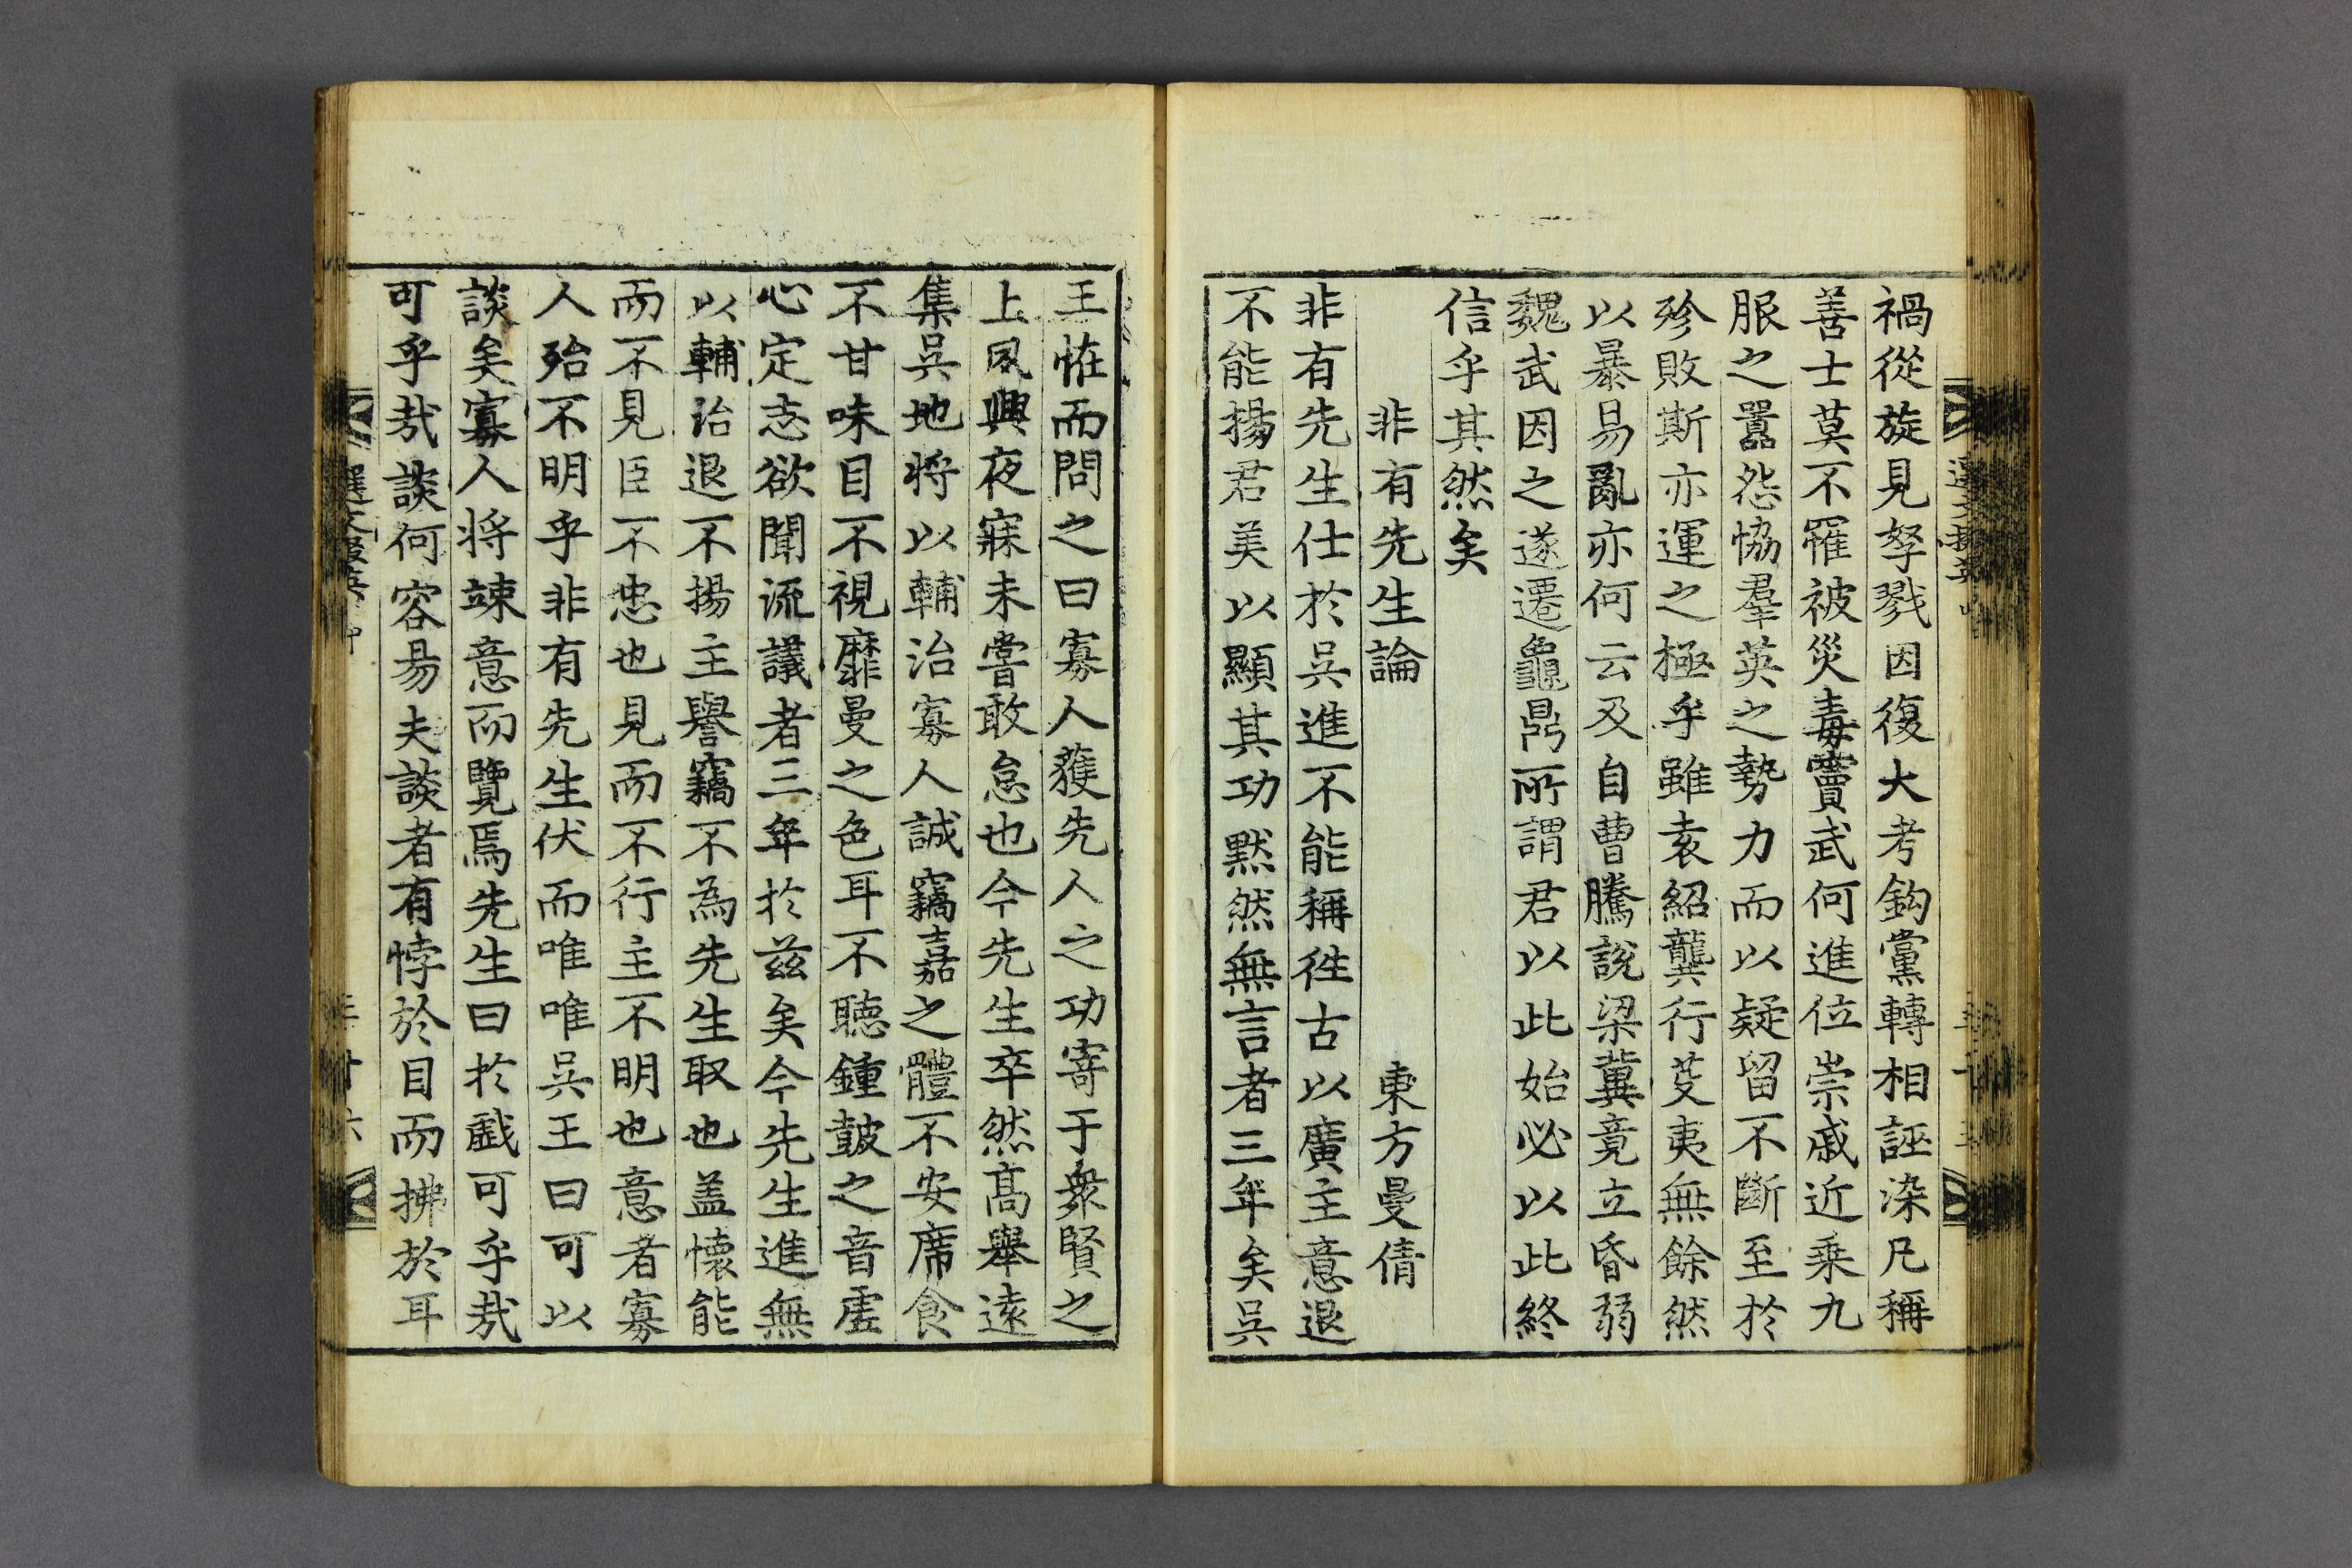 禍從旋見孥戮因復大考鈎黨轉相誣染凡稱
善士莫不罹被災毒竇武何進位崇戚近乗九
服之囂怨恊羣英之勢力而以疑留不斷至於
殄敗斯亦運之極乎雖袁紹龔行芟夷無餘然
以暴易亂亦何云及自曹騰說梁冀竟立昏弱
魏武因之遂遷龜鼎所謂君以此始必以此終
信乎其然矣
非有先生論 東方曼倩
非有先生仕於吳進不能稱徃古以廣主意退
不能揚君美以顯其功黙然無言者三年矣吳
王恠而問之曰寡人獲先人之功寄于衆賢之
上夙興夜寐未嘗敢怠也今先生卒然髙舉遠
集吳地将以輔治寡人誠竊嘉之體不安席食
不甘味目不視靡曼之色耳不聴鍾皷之音虗
心定志欲聞流議者三年於兹矣今先生進無
以輔治退不揚主譽竊不為先生取也盖懐能
而不見臣不忠也見而不行主不明也意者寡
人殆不明乎非有先生伏而唯唯吳王曰可以
談矣寡人将竦意而覽焉先生曰於戱可乎㢤
可乎㢤談何容易夫談者有悖於目而拂於耳